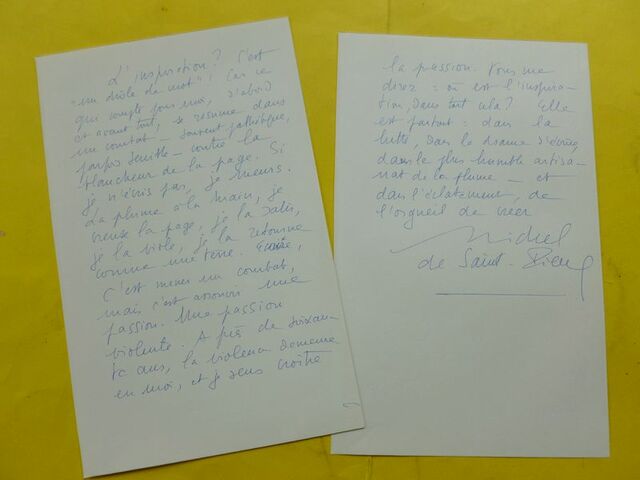 L'inspiration? C'est
"un drôle de mot"! Car ce
qui compte pour moi, d'abord
et avant tout, se résume dans
un combat - souvent pathétique,
parfois terrible - contre la
blancheur de la page. Si
je n'écris pas, je meurs.
La plume à la main, je
creuse la page, je la
je la viole, je la retourne
comme une terre. Écrire,
c'est mener un combat,
mais c'est assouvir une
passion. Une passion
violente. A près de soixan-
te ans, la violence demeure
en moi, et je sens croître
la passion. Vous me
direz : où est l'inspira-
tion, dans tout cela? Elle
est partout : dans la
lutte, dans le drame d'écrire,
dans le plus humble artisa-
nat de la plume - et
dans l'éclatement, de
l'orgueil de créer
Michel
de Saint-Pierre